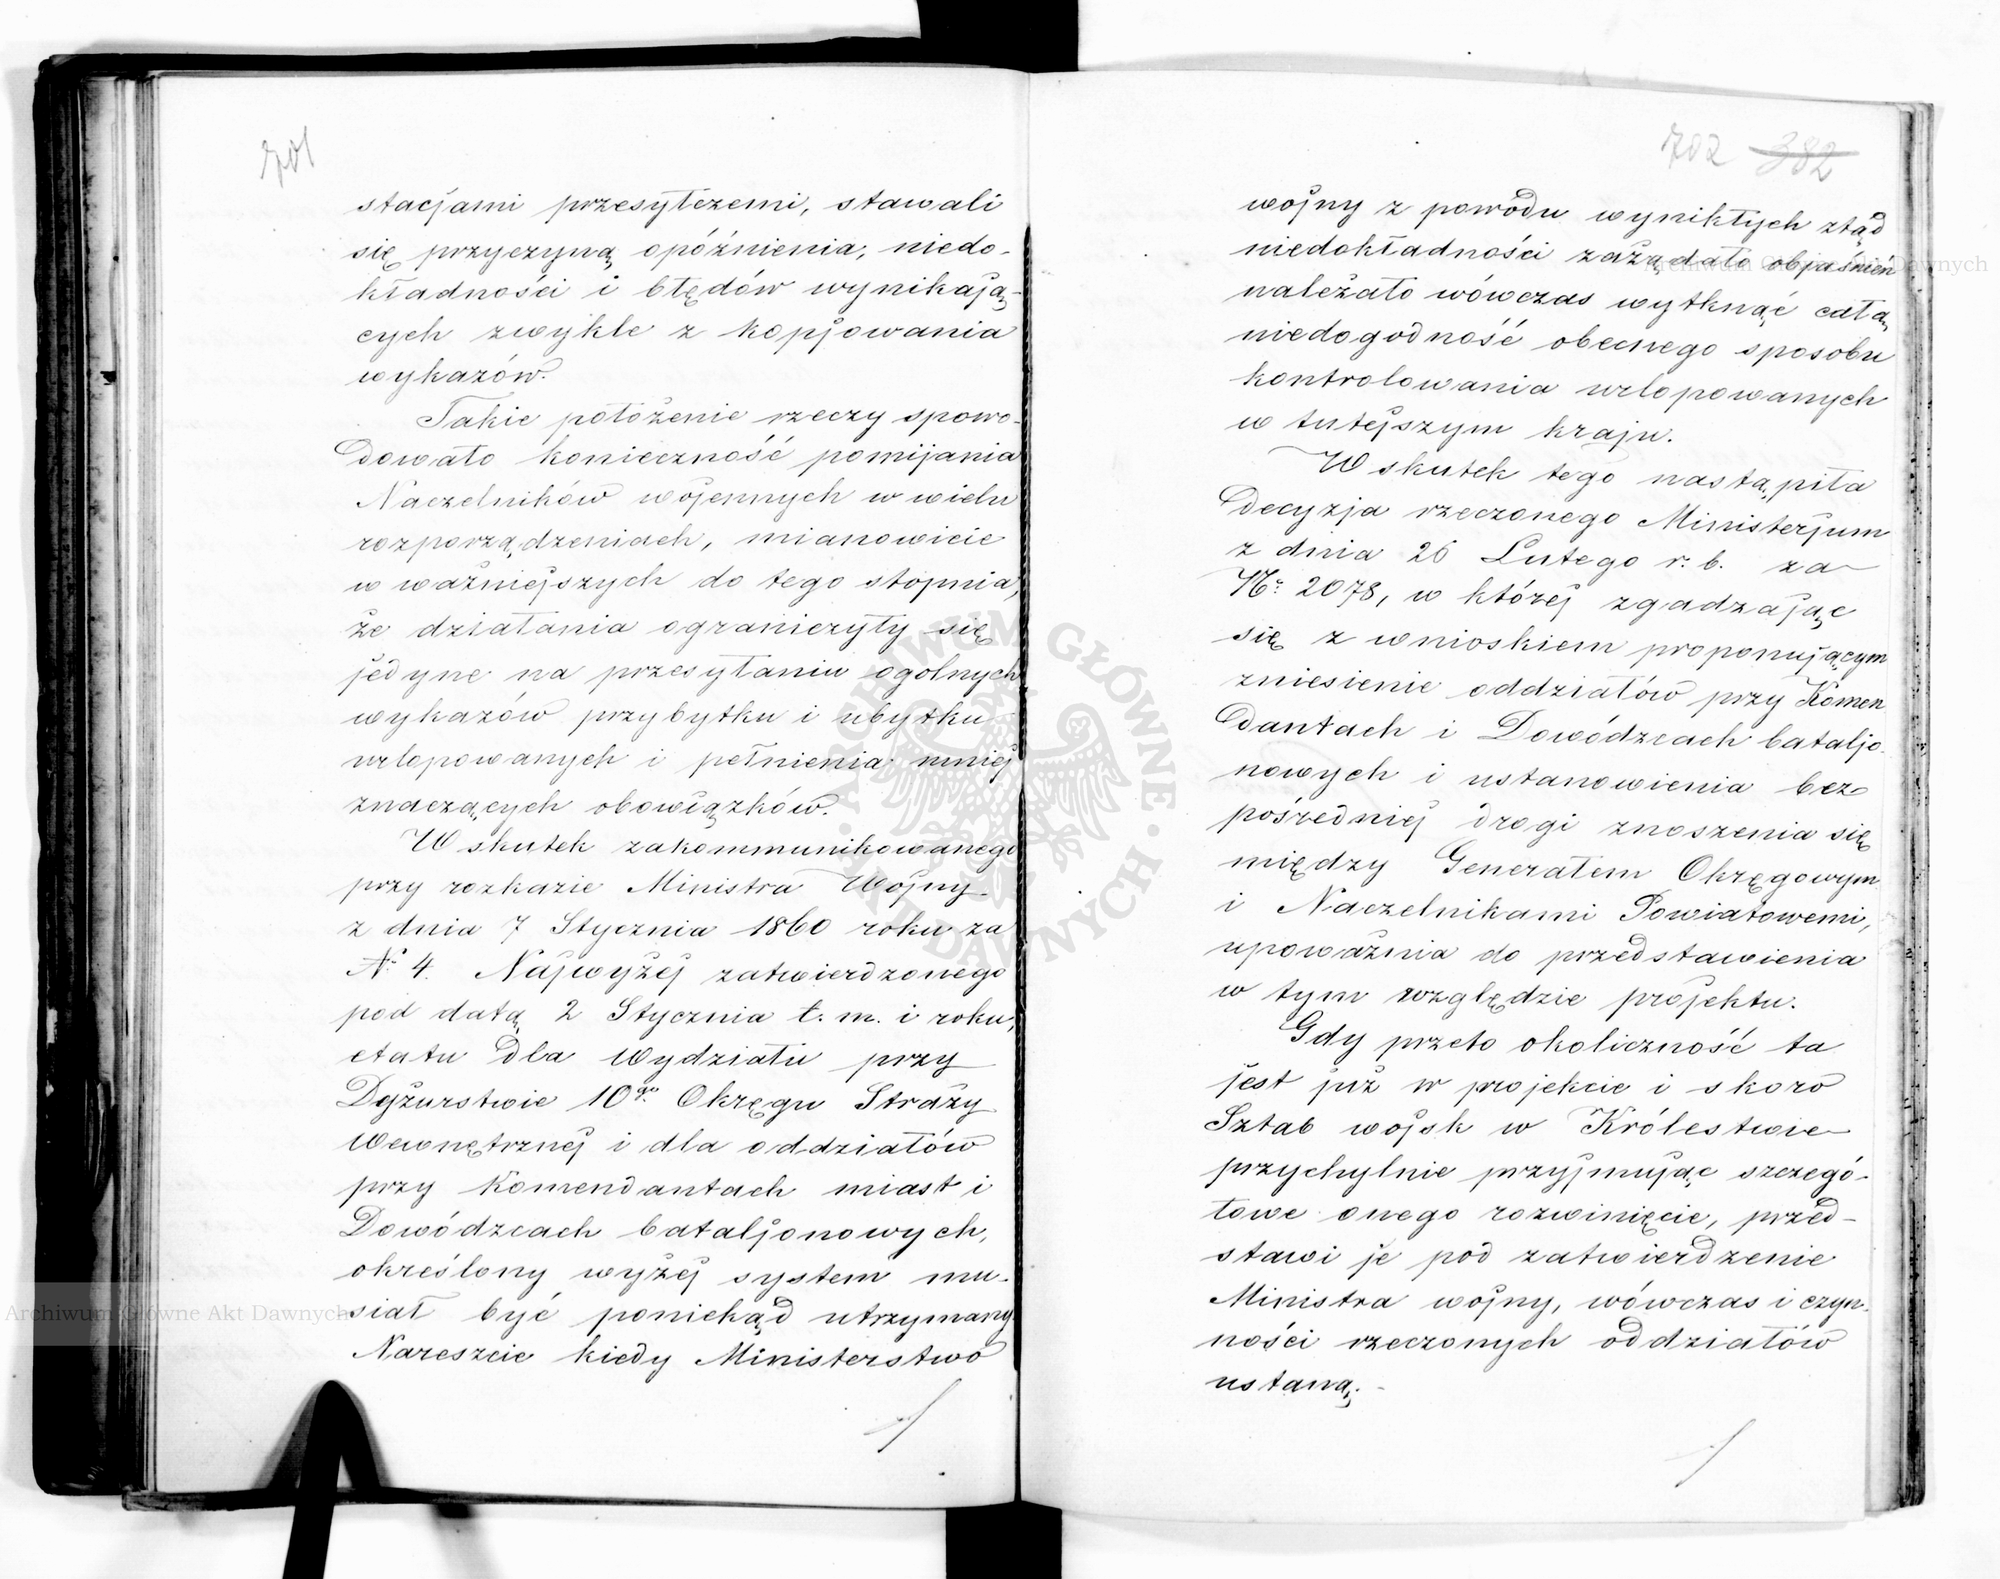 701
stacjami przesyłczemi, stawali
się przyczyną opóźnienia, niedo-
kładności i błędów wynikają-
cych zwykle z kopjowania
wykazów.
Takie położenie rzeczy spowo-
dowało konieczność pomijania
Naczelników wojennych w wielu
rozporządzeniach, mianowicie
w ważniejszych do tego stopnia,
że działania ograniczyły się
jedyne na przesyłaniu ogólnych
wykazów przybytku i ubytku
urlopowanych i pełnienia mniej
znaczących obowiązków.
W skutek zakommunikowanego
przy rozkazie Ministra Wojny
z dnia 7 Stycznia 1860 roku za
Nº 4. Najwyżej zatwierdzonego
pod datą 2 Stycznia t. m. i roku,
etatu dla Wydziału przy
Dyżurstwie 10go Okręgu Straży
Wewnętrznej i dla oddziałów
przy Komendantach miast i
Dowódzcach bataljonowych,
określony wyżej system mu-
siał być poniekąd utrzymany.
Nareszcie kiedy Ministerstwo
702 382
wojny z powodu wynikłych ztąd
niedokładności zażądało objaśnień
należało wówczas wytknąć całą
niedogodność obecnego sposobu
kontrolowania urlopowanych
w tutejszym kraju.
W skutek tego nastąpiła
decyzja rzeczonego Ministerjum
z dnia 26 Lutego r. b. za
Nº 2078, w której zgadzając
się z wnioskiem proponującym
zniesienie oddziałów przy Komen
dantach i Dowódzcach bataljo-
nowych i ustanowienia bez
pośredniej drogi znoszenia się
między Generałem Okręgowym
i Naczelnikami Powiatowemi,
upoważnia do przedstawienia
w tym względzie projektu.
Gdy przeto okoliczność ta
jest już w projekcie i skoro
Sztab wojsk w Królestwie
przychylnie przyjmując szczegó-
łowe onego rozwinięcie, przed-
stawi je pod zatwierdzenie
Ministra wojny, wówczas i czyn-
ności rzeczonych oddziałów
ustaną.-
Archiwum Główne Akt Dawnych
Archiwum Główne Akt Dawnych
ARCHIWUM GŁÓWNE · AKT DAWNYCH ·